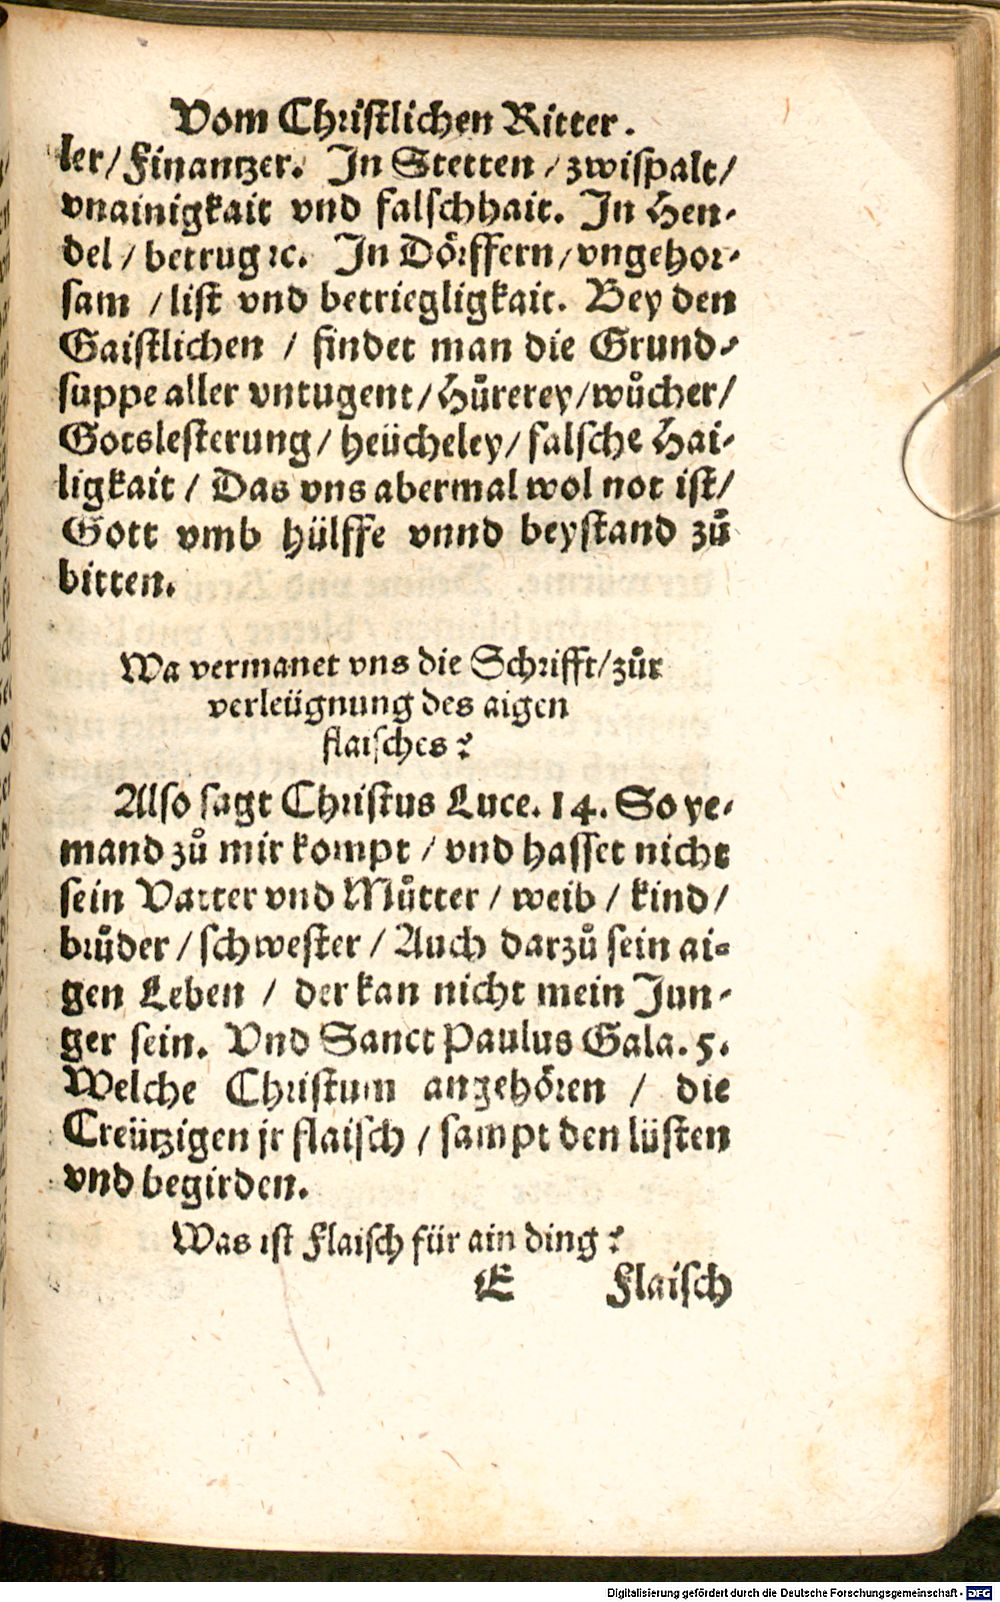 Vom Christlichen Ritter.
ler/Finantzer. In Stetten / zwispalt/
vnainigkait vnd falschhait. In Hen-
del / betrug ꝛc. In Dörffern/vngehor-
sam / list vnd betriegligkait. Bey den
Gaistlichen / findet man die Grund-
suppe aller vntugent/Hůrerey/wůcher/
Gotslesterung/heücheley/falsche Hai-
ligkait / Das vns abermal wol not ist/
Gott vmb hülffe vnnd beystand zů
bitten.
Wa vermanet vns die Schrifft/zůr
verleügnung des aigen
flaisches?
Also sagt Christus Luce. 14. So ye-
mand zů mir kompt / vnd hasset nicht
sein Vatter vnd Můtter / weib / kind/
brůder / schwester / Auch darzů sein ai-
gen Leben / der kan nicht mein Jun-
ger sein. Vnd Sanct Paulus Gala. 5.
Welche Christum angehören / die
Creützigen jr flaisch / sampt den lüsten
vnd begirden.
Was ist Flaisch für ain ding?
E Flaisch
Digitalisierung gefördert durch die Deutsche Forschungsgemeinschaft - DFG